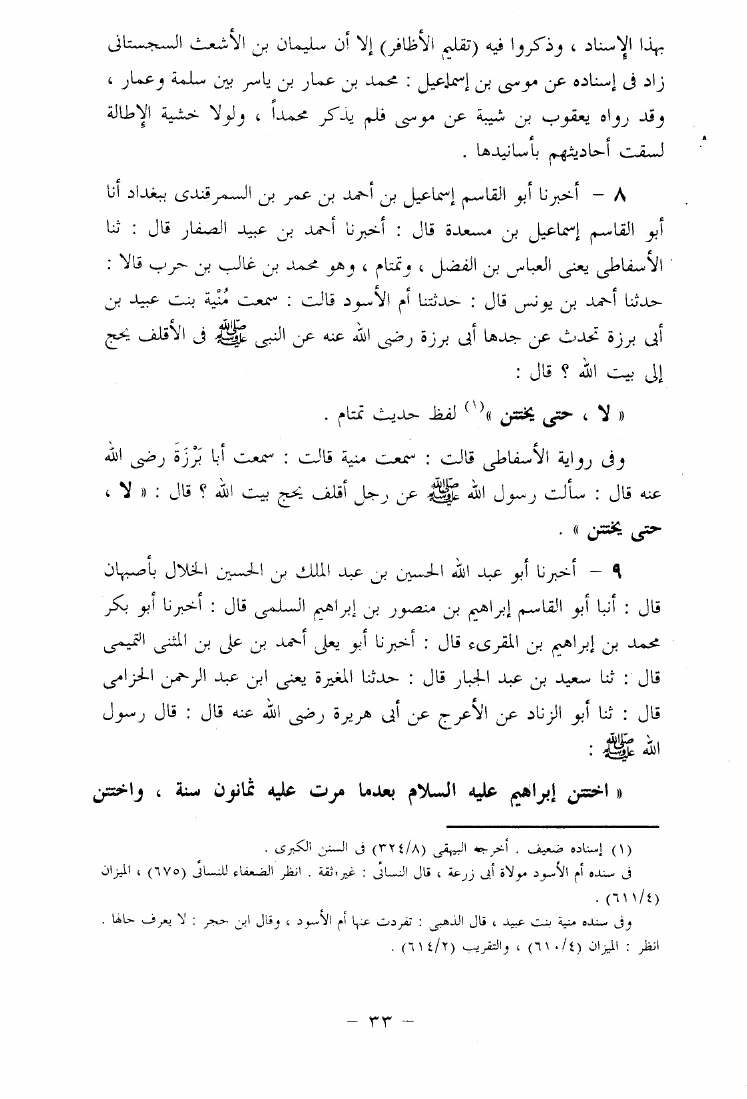 بهذا الإسناد ، وذكروا فيه (تقليم الأظافر) إلا أن سليمان بن الأشعث السجستانى
زاد فى إسناده عن موسى بن إسماعيل : محمد بن عمار بن ياسر بين سلمة وعمار ،
وقد رواه يعقوب بن شيبة عن موسى فلم يذكر محمداً ، ولولا خشية الإطالة
لسقت أحاديثهم بأسانيدها .
٨ – أخبرنا أبو القاسم إسماعيل بن أحمد بن عمر بن السمرقندى ببغداد أنا
أبو القاسم إسماعيل بن مسعدة قال : أخبرنا أحمد بن عبيد الصفار قال : ثنا
الأسفاطى يعنى العباس بن الفضل ، وتمتام ، وهو محمد بن غالب بن حرب قالا :
حدثنا أحمد بن يونس قال : حدثتنا أم الأسود قالت : سمعت مُنْية بنت عبيد بن
أبى برزة تحدث عن جدها أبى برزة رضى الله عنه عن النبى ﷺ فى الأقلف يحج
إلى بيت الله ؟ قال :
« لا ، حتى يختتن »(١) لفظ حديث تمتام .
وفى رواية الأسفاطى قالت : سمعت منية قالت : سمعت أبا بَرْزَةَ رضى الله
عنه قال : سألت رسول الله ﷺ عن رجل أقلف يحج بيت الله ؟ قال : « لا ،
حتى يختتن » .
٩ – أخبرنا أبو عبد الله الحسين بن عبد الملك بن الحسين الخلال بأصبهان
قال : أنبا أبو القاسم إبراهيم بن منصور بن إبراهيم السلمى قال : أخبرنا أبو بكر
محمد بن إبراهيم بن المقرىء قال : أخبرنا أبو يعلى أحمد بن على بن المثنى التميمى
قال : ثنا سعيد بن عبد الجبار قال : حدثنا المغيرة يعنى ابن عبد الرحمن الحزامى
قال : ثنا أبو الزناد عن الأعرج عن أبى هريرة رضى الله عنه قال : قال رسول
الله ﷺ :
« اختتن إبراهيم عليه السلام بعدما مرت عليه ثمانون سنة ، واختتن
(١) إسناده ضعيف . أخرجه البيهقى (٣٢٤/٨) فى السنن الكبرى .
فى سنده أم الأسود مولاة أبى زرعة ، قال النسائى : غير ثقة . انظر الضعفاء للنسائى (٦٧٥) ، الميزان
(٦١١/٤) .
وفى سنده منية بنت عبيد ، قال الذهبى : تفردت عنها أم الأسود ، وقال ابن حجر : لا يعرف حالها .
انظر : الميزان (٦١٠/٤) ، والتقريب (٦١٤/٢) .
– ٣٣ –